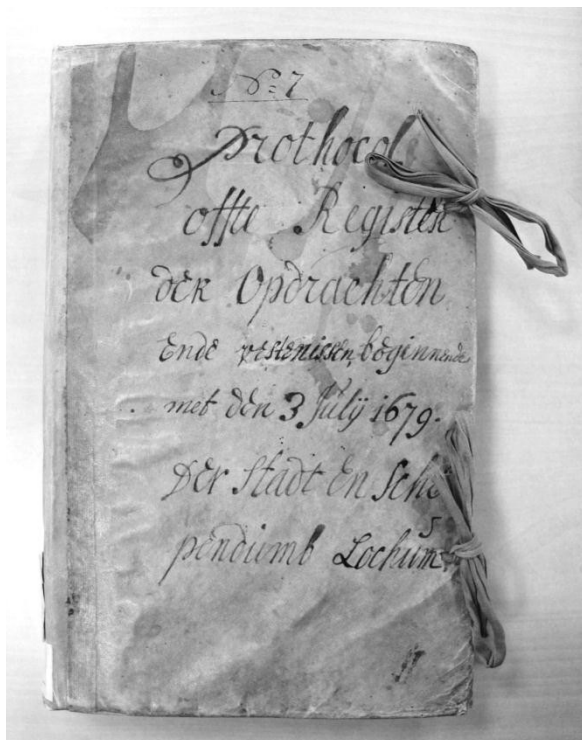 No: 7
Prothocol
offte Register
der Opdrachten
Ende vestenissen, beginnende
met den 3 Julij 1679.
Der Stadt en Sche
pendumb Lochum